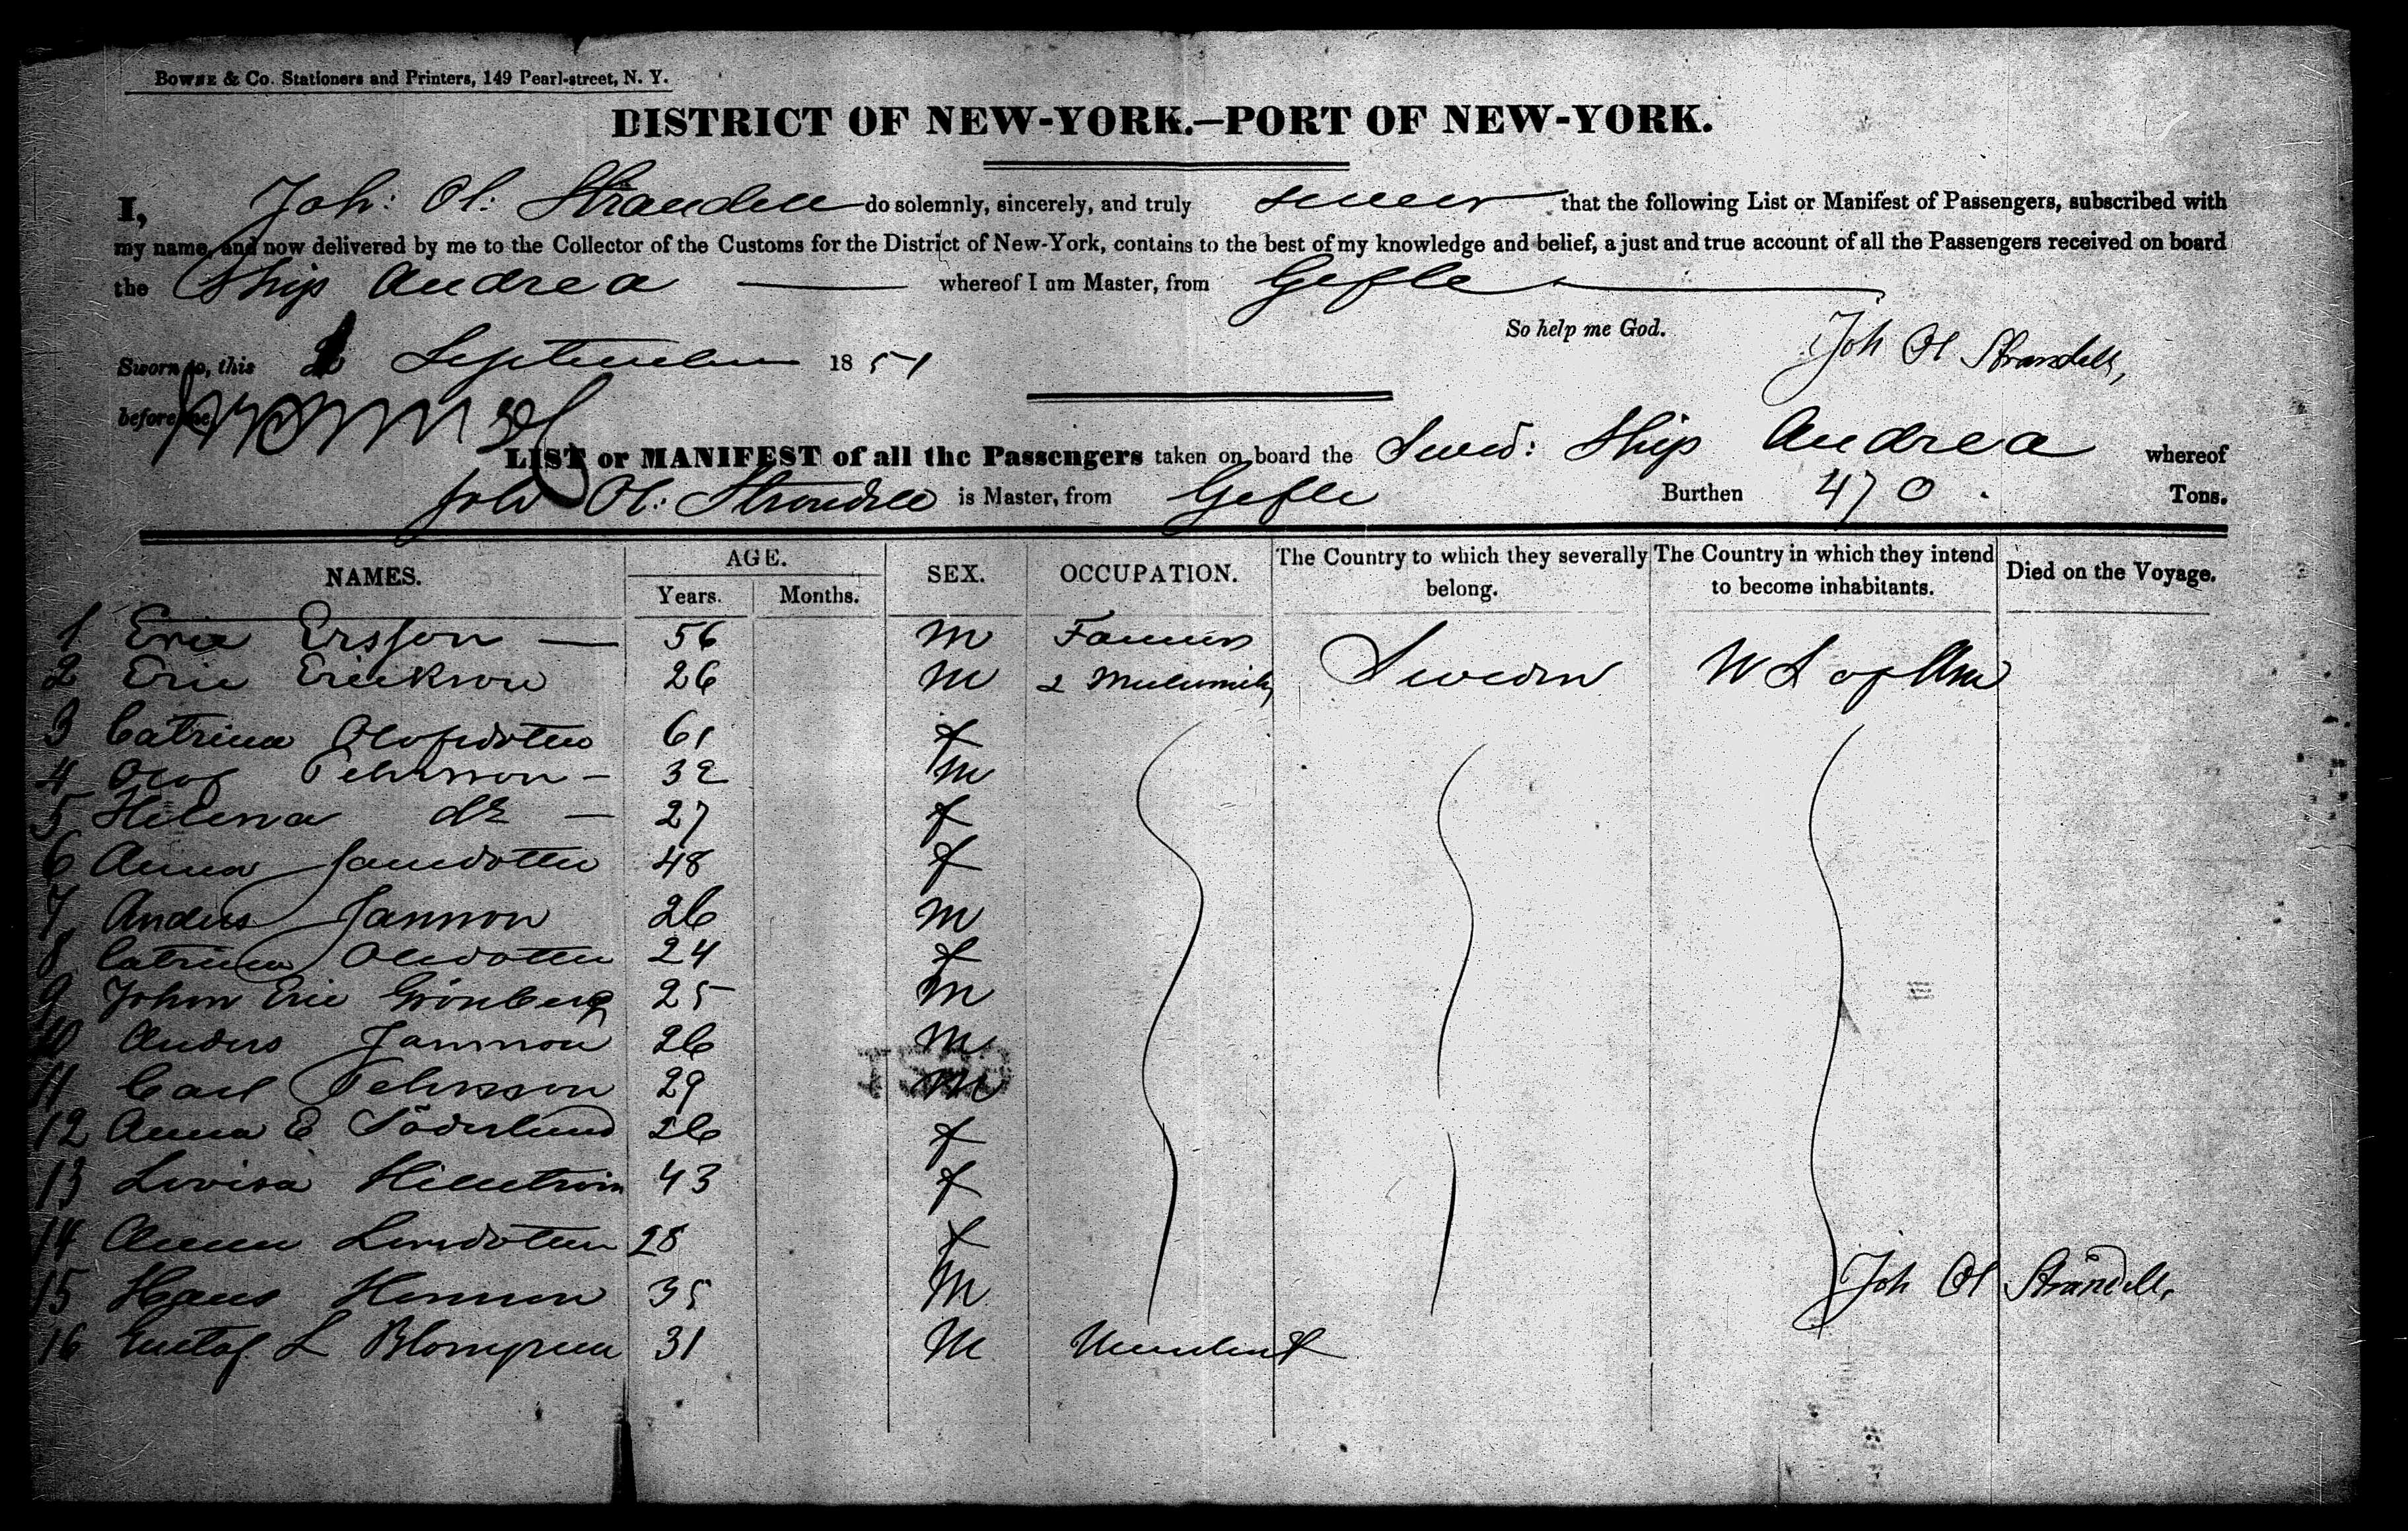 BOWNE & Co. Stationers and Printers, 149 Pearl-street, N. Y.
DISTRICT OF NEW-YORK.—PORT OF NEW-YORK.
I, Joh: Ol: Strandell do solemnly, sincerely, and truly swear that the following List or Manifest of Passengers, subscribed with
my name, and now delivered by me to the Collector of the Customs for the District of New-York, contains to the best of my knowledge and belief, a just and true account of all the Passengers received on board
the Ship Andrea whereof I am Master, from Gefle
So help me God.
Sworn to, this 2 September 1851 Joh Ol Strandell,
before me
LIST or MANIFEST of all the Passengers taken on board the Swed: Ship Andrea whereof
Joh Ol: Strandell is Master, from Gefle Burthen 470. Tons.
NAMES. AGE. Years. Months. SEX. OCCUPATION. The Country to which they severally belong. The Country in which they intend to become inhabitants. Died on the Voyage.
1 Eric Ersson — 56 M Farmers Sweden
2 Eric Erickson 26 M & U S of Am
3 Catrina Olofsdotter 61 f
4 Olof Pehrsson — 32 M
5 Helena do — 27 f
6 Anna Jansdotter 48 f
7 Anders Jansson 26 M
8 Catrina Olsdotter 24 f
9 Johan Eric Grönberg 25 M
10 Anders Jansson 26 M
11 Carl Pehrsson 29 M
12 Anna E Söderlund 26 f
13 Lovisa Hillström 43 f
14 Anna Larsdotter 28 f
15 Hans Hansson 35 M Joh Ol Strandell,
16 Gustaf L Blomgren 31 M